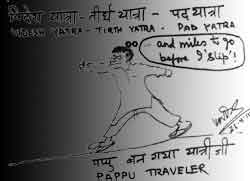 विदेश यात्रा - तीर्थ यात्रा - पद यात्रा
VIDESH YATRA - TIRTH YATRA - PAD YATRA
- and miles to go
before I 'slip'!
पप्पु बन गया यात्री जी
PAPPU TRAVELER